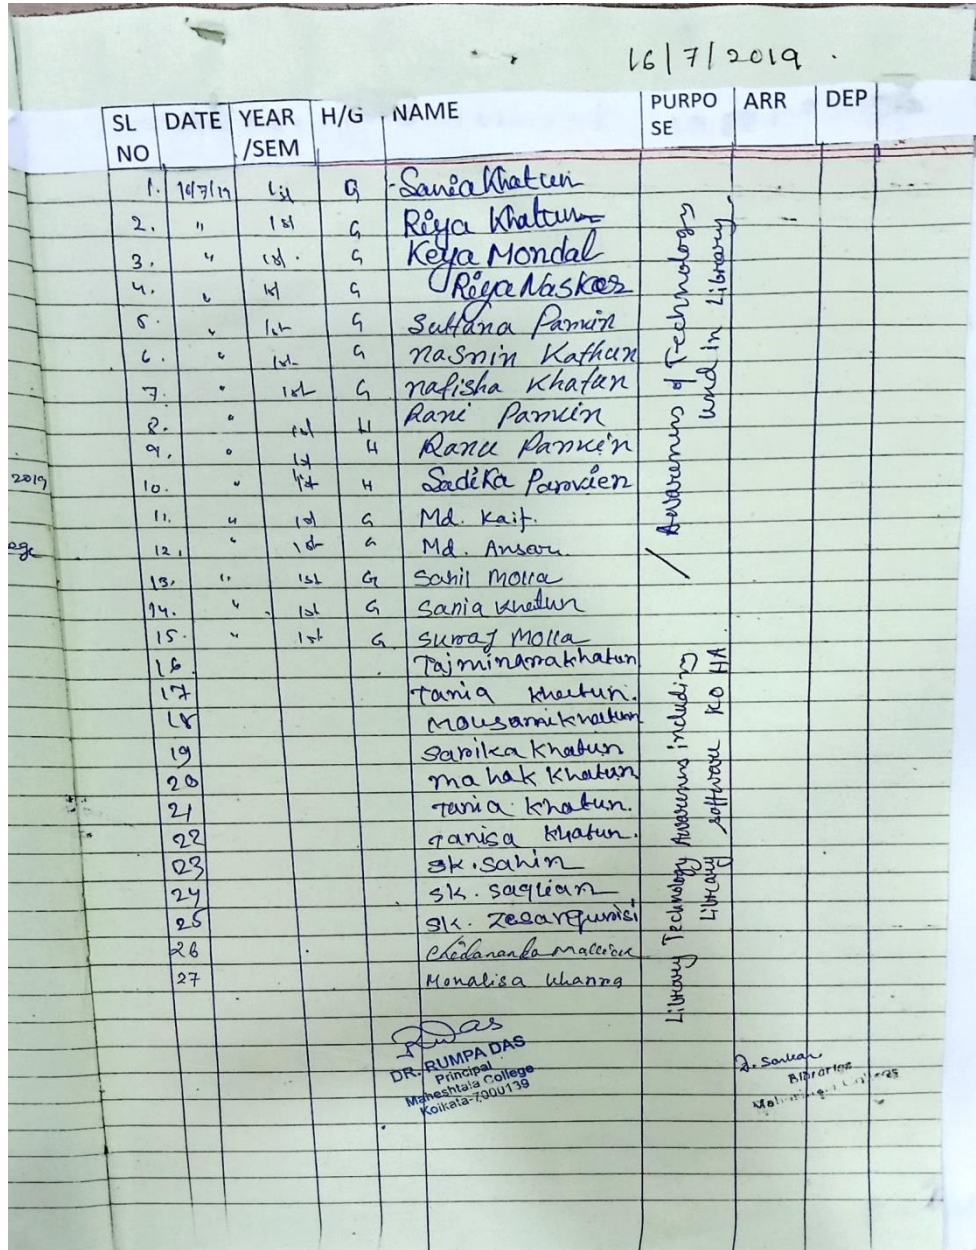 16/7/2019
SL NO DATE YEAR /SEM H/G NAME PURPO SE ARR DEP
1. 16/7/19 1st G Sania Khatun
2. " 1st G Riya Khatun
3. " 1st. G Keya Mondal
4. " 1st G Riya Naskar
5. " 1st G Sultana Parvin
6. " 1st G Nasnin Kathun
7. " 1st G nafisha Khatun
8. " 1st H Rani Parvein
9. " 1st H Ranu Parvein
10. " 1st H Sadika Parvien
11. " 1st G Md. Kaif.
12. " 1st G Md. Ansari
13. " 1st G Sahil Molla
14. " 1st G Sania Khatun
15. " 1st G Suraj Molla
16 Tajminara khatun
17 Tania Khatun.
18 Mousami khatun
19 Sanika Khatun
20 mahak Khatun
21 Tania Khatun.
22 Tanisa Khatun.
23 Sk. Sahin
24 Sk.
25 Sk.
26 Mallick
27 Monalisa Khanna
/ Awareness of Technology
used in Library
Library Technology Awareness including
Library software KOHA
2019
ege
Das
DR. RUMPA DAS
Principal
Maheshtala College
Kolkata-7000139
D. Sarkar
Librarian